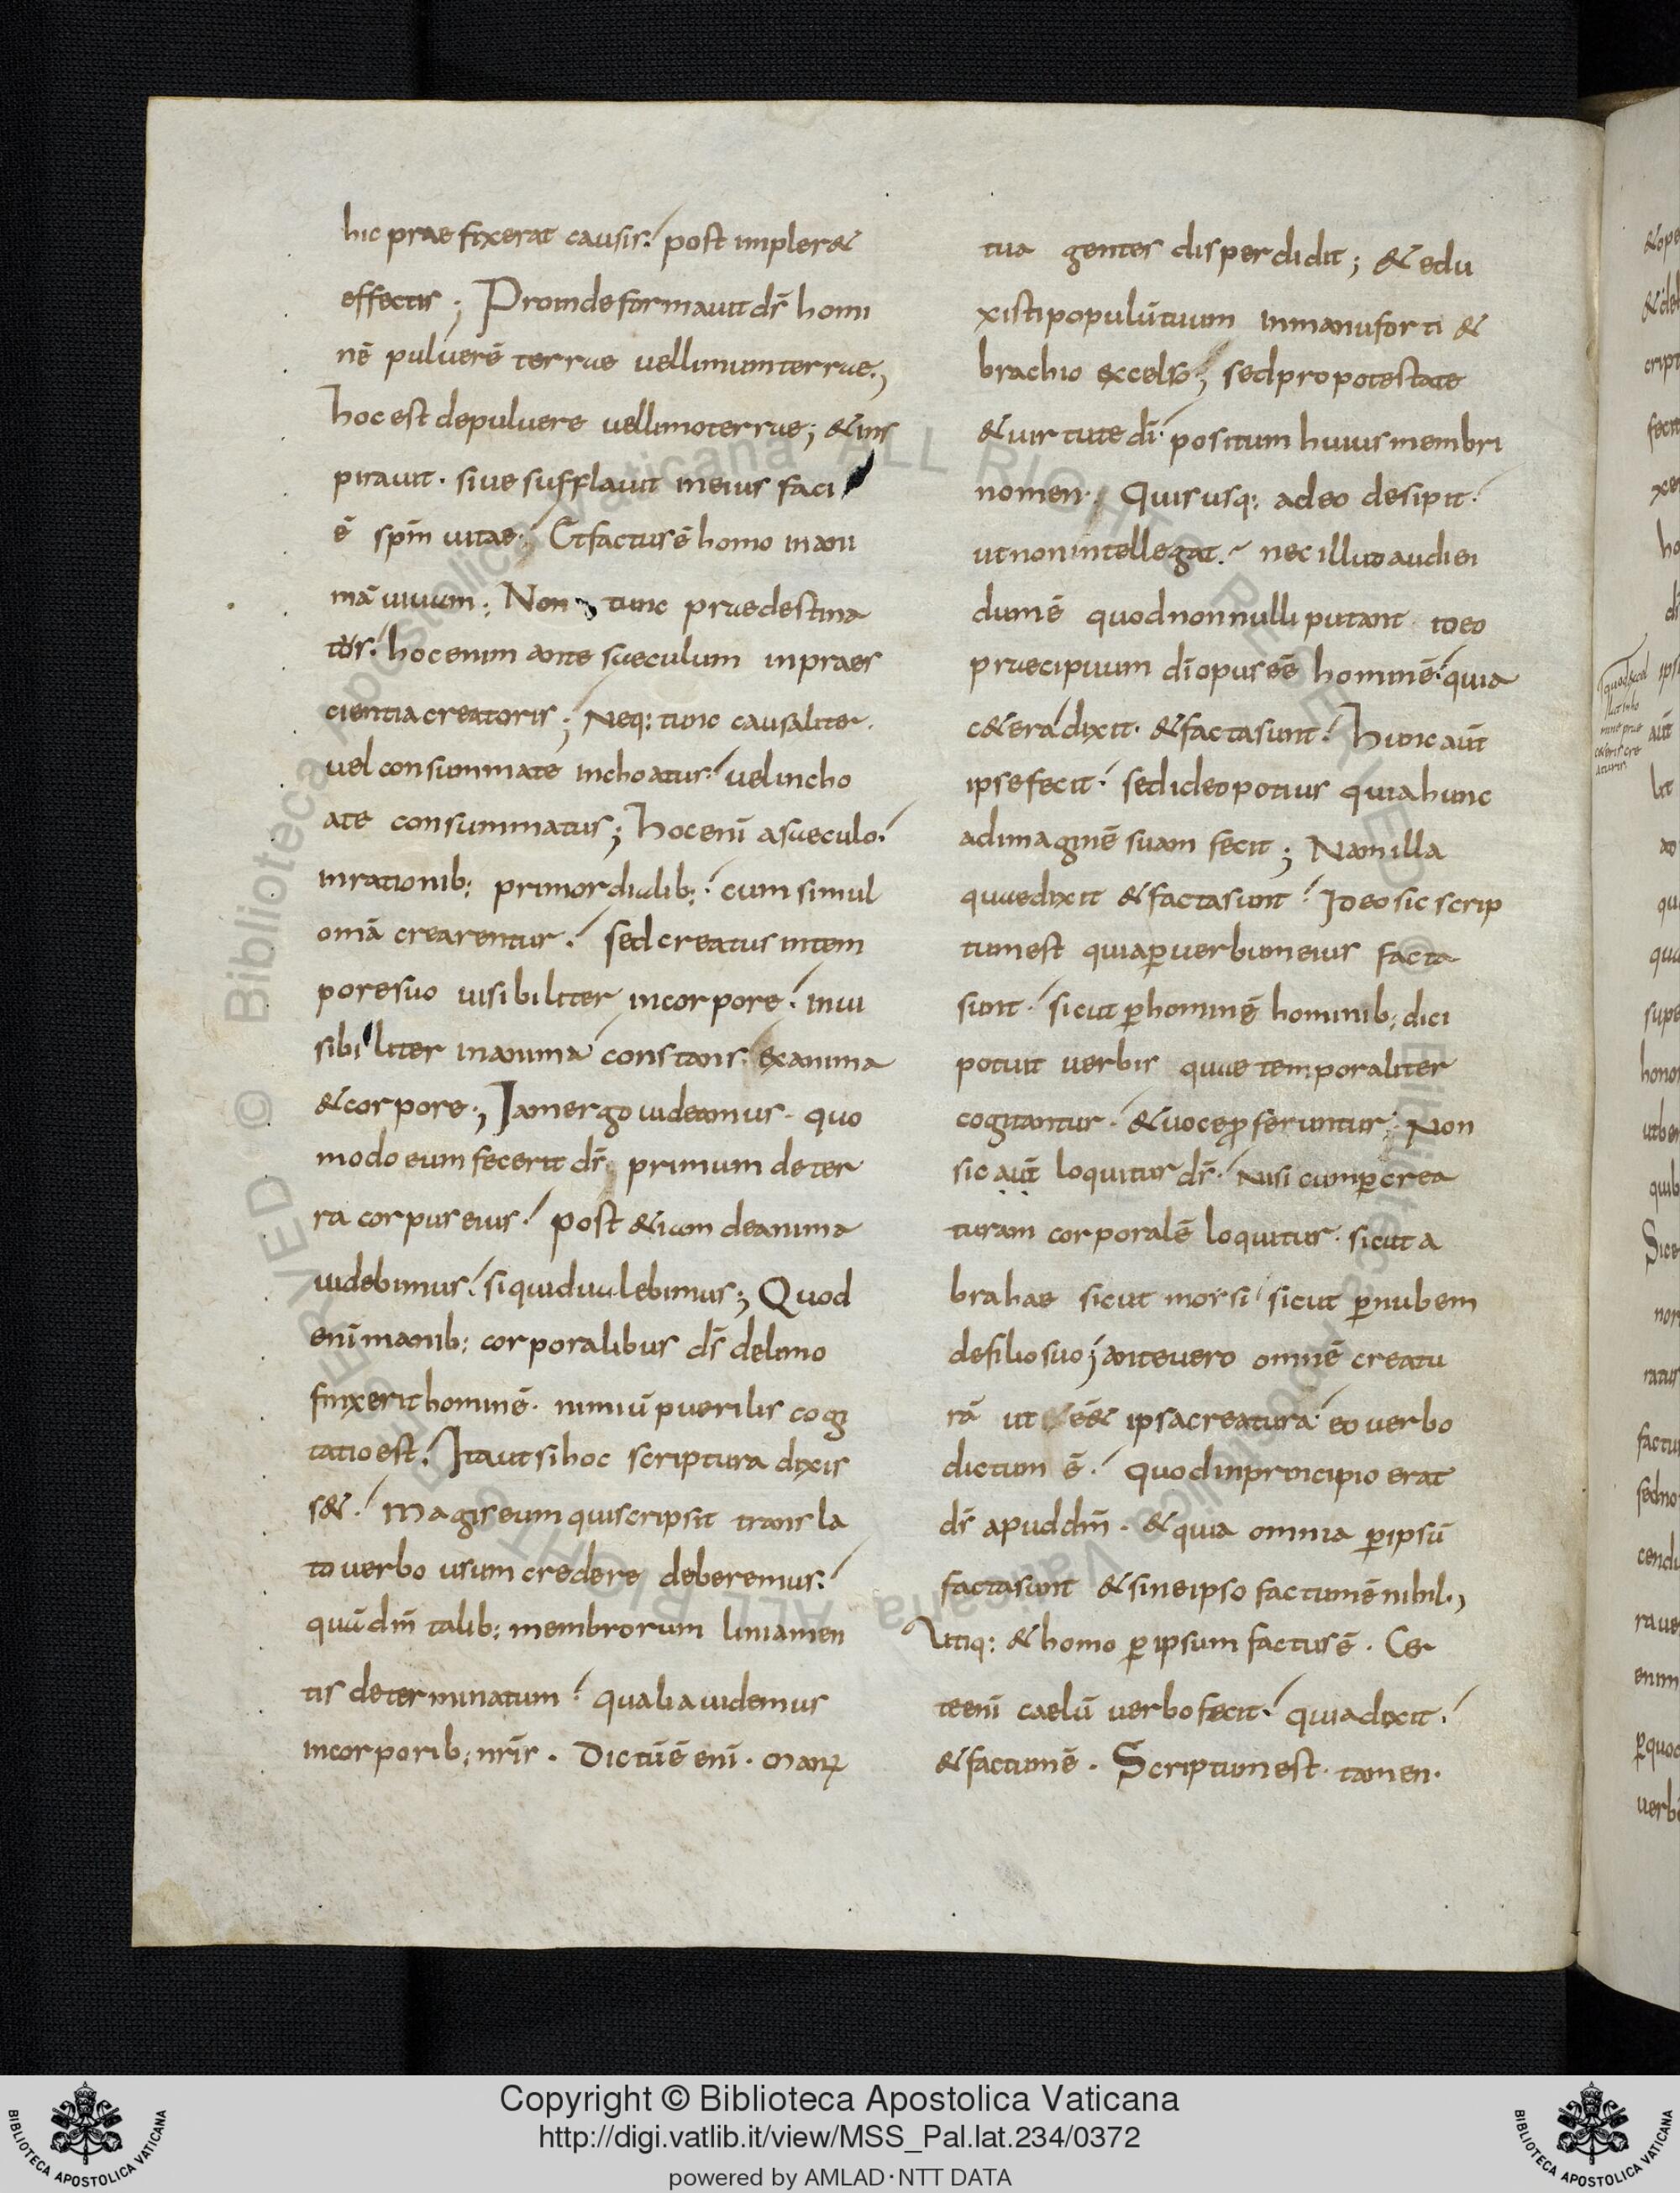 hic praefixerat causis. post impler&
effectis; Proinde formauit ds̄ homi
nē puluerē terrae uel limum terrae;
hoc est de puluere uel limo terrae; & ins
pirauit. siue sufflauit in eius faci
ē sp̄m uitae; Et factus ē homo in ani
mā uiuam; Non tunc praedestina
tus. hoc enim ante saeculum in praes
cientia creatoris; Neq: tunc causaliter.
uel consummate inchoatus. uel incho
ate consummatus; hoc enī a saeculo.
in rationib: primordialib:. cum simul
om̄a crearentur. sed creatus in tem
pore suo uisibiliter in corpore. inui
sibiliter in anima constans. ex anima
& corpore; Iam ergo uideamus. quo
modo eum fecerit ds̄. primum de ter
ra corpus eius. post & iam de anima
uidebimus. si quid ualebimus; Quod
enī manib: corporalibus ds̄ de limo
finxerit hominē. nimiū puerilis cogi
tatio est. Ita ut si hoc scriptura dixis
s&. Magis eum qui scripsit transla
to verbo usum credere deberemus.
quā dm̄ talib: membrorum liniamen
tis determinatum. qualia uidemus
in corporib: nr̄is. Dictū ē enī. Manꝰ
tua gentes disperdidit; & edu
xisti populū tuum in manu forti &
brachio excelso; sed pro potestate
& uirtute dī. positum huius membri
nomen. Quis usq: adeo desipit.
ut non intellegat. nec illud audien
dum ē quod nonnulli putant ideo
praecipuum dī opus eē hominē. quia
c&era dixit. & facta sunt. Hunc aūt
ipse fecit. sed ideo potius quia hunc
ad imaginē suam fecit; Nam illa
quae dixit & facta sunt. Ideo sic scrip
tum est quia ꝑ uerbum eius facta
sunt. sicut ꝑ hominē hominib: dici
potuit uerbis quae temporaliter
cogitantur. & uoce ꝓferuntur; Non
sic aūt loquitur ds̄. Nisi cum ꝑ crea
turam corporalē loquitur. sicut a
brahae sicut morsi sicut ꝑ nubem
de filio suo; ante uero omnē creatu
rā ut eē& ipsa creatura. eo uerbo
dictum ē. quod in principio erat
ds̄ apud dm̄. & quia omnia ꝑ ipsū
facta sunt & sine ipso factum ē nihil;
Utiq: & homo ꝑ ipsum factus ē. Cer
te enī caelū uerbo fecit. quia dixit.
& factum ē. Scriptum est. tamen.
Copyright © Biblioteca Apostolica Vaticana
http://digi.vatlib.it/view/MSS_Pal.lat.234/0372
powered by AMLAD·NTT DATA
BIBLIOTECA APOSTOLICA VATICANA
BIBLIOTECA APOSTOLICA VATICANA